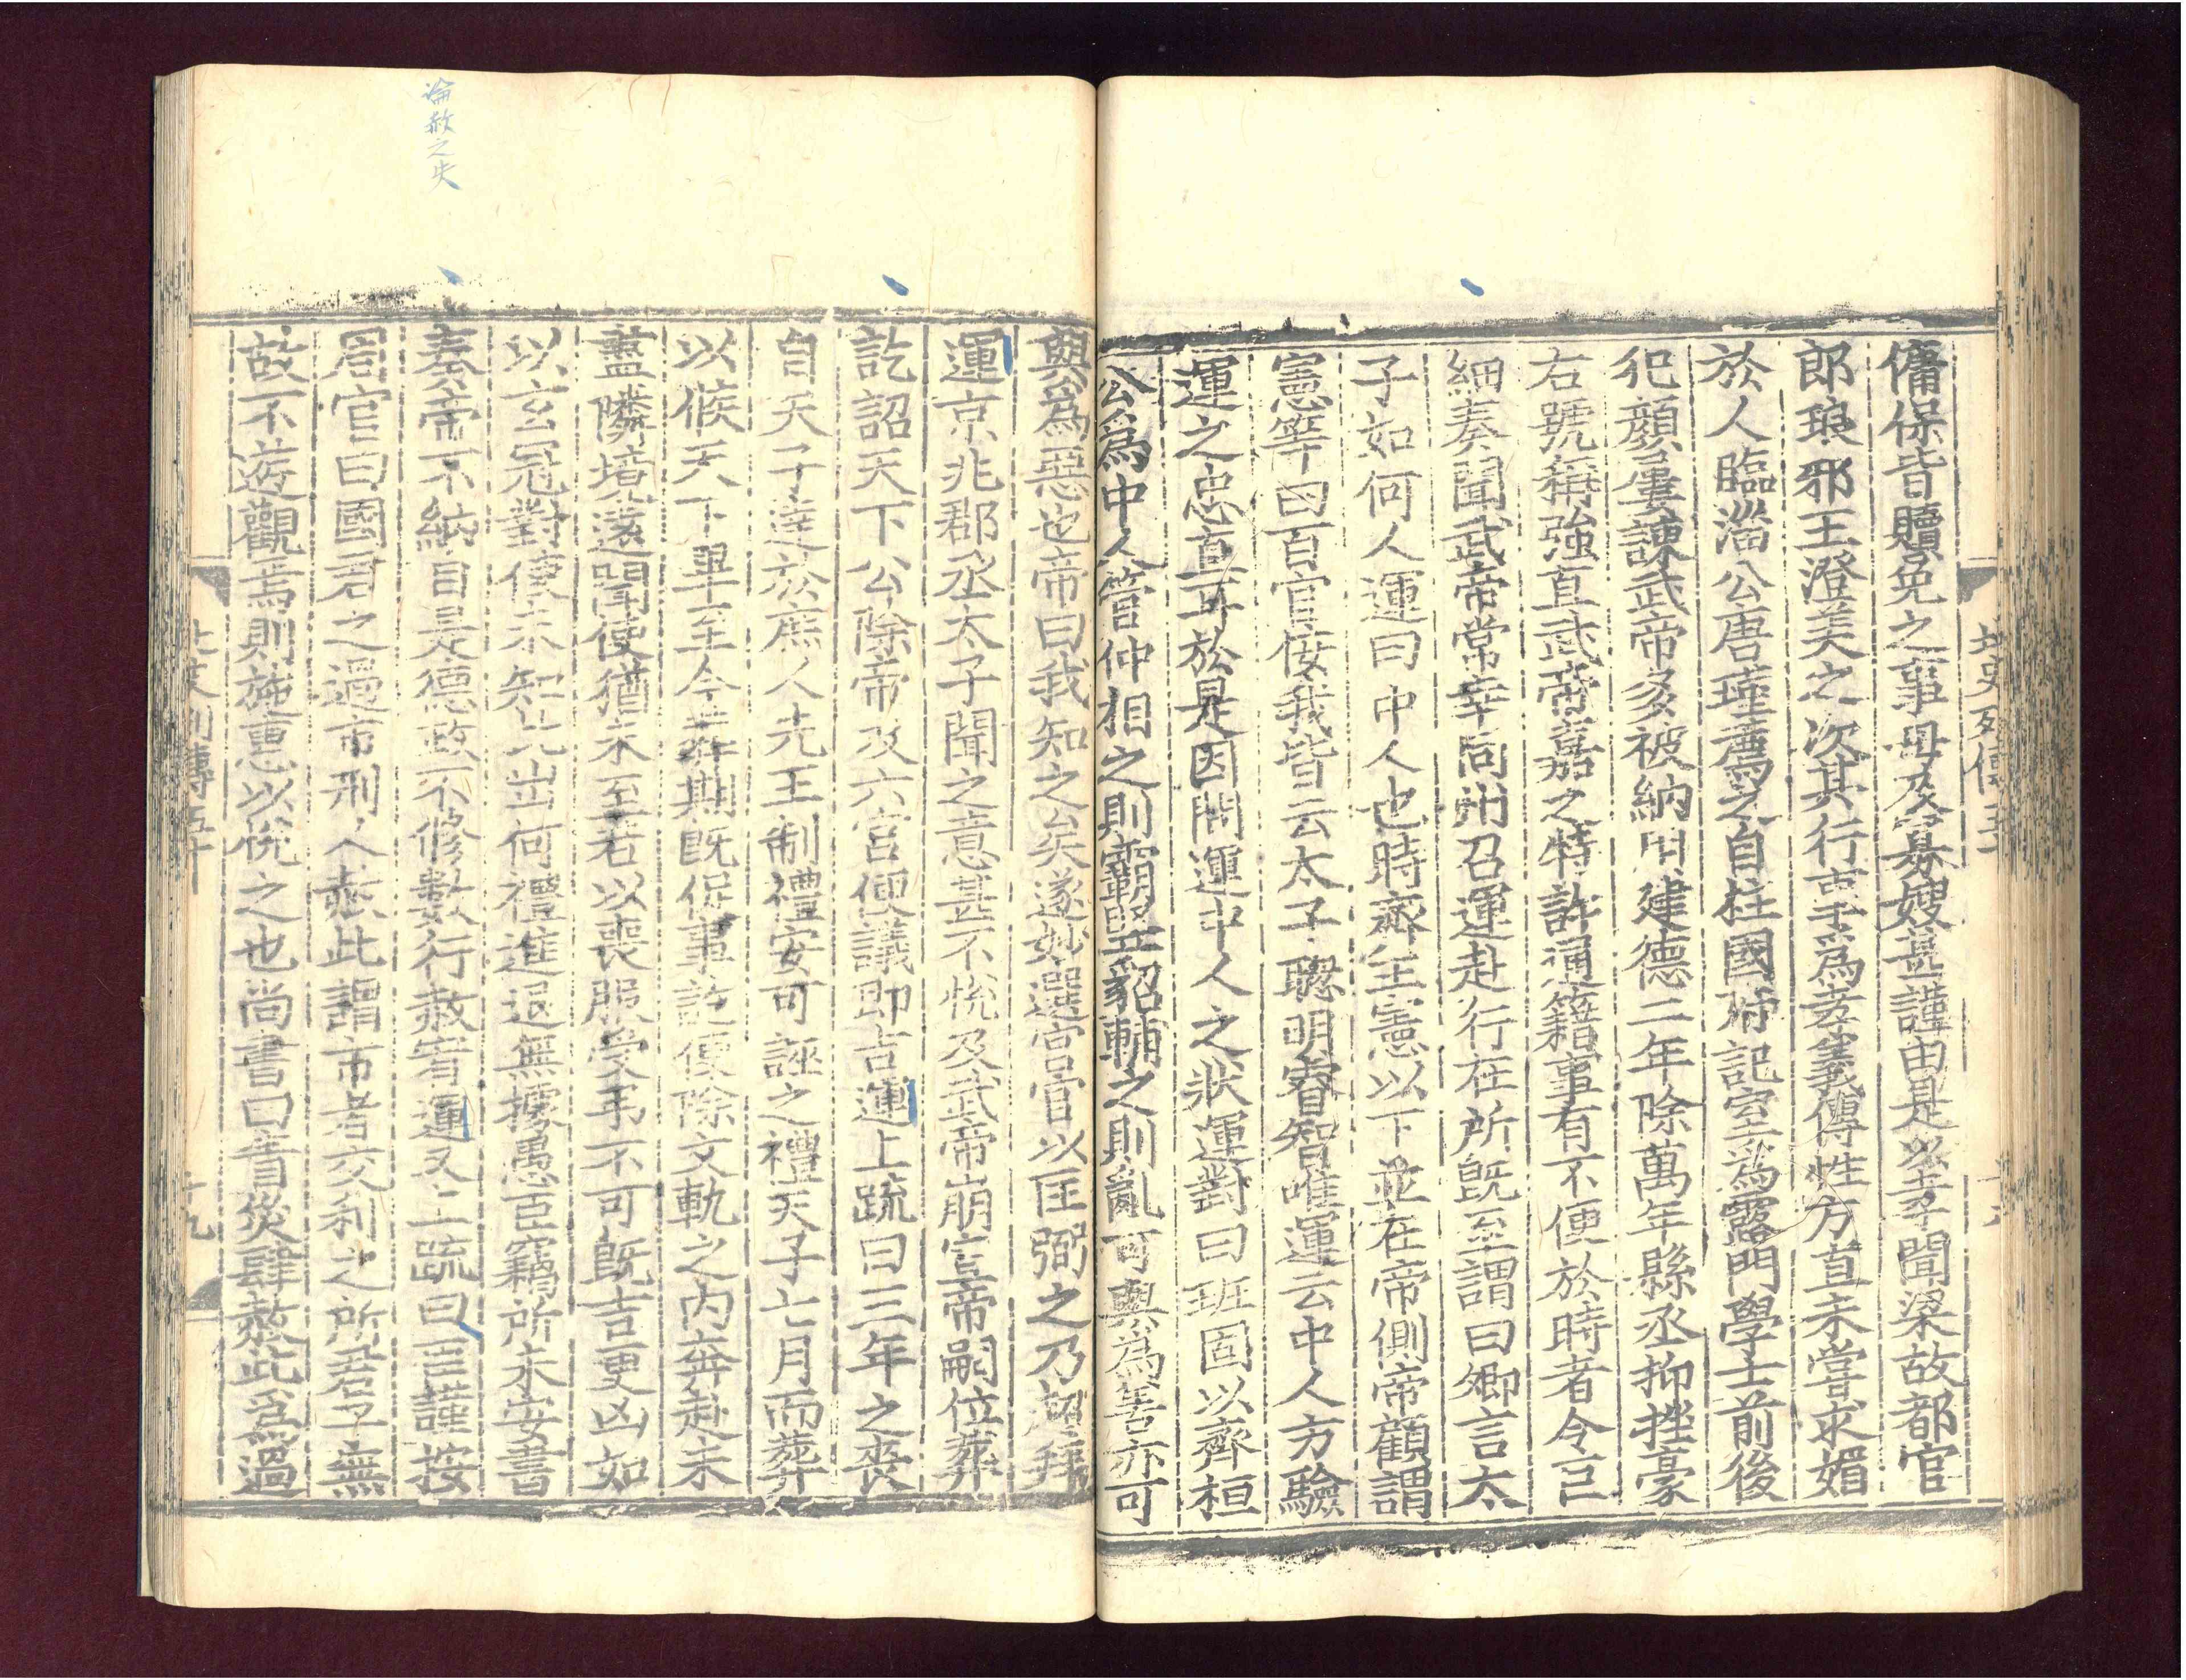 傭保皆贖免之事母及寡嫂甚謹由是以孝聞梁故都官
郎琅邪王澄美之次其行事爲孝義傳性方直未嘗求媚
於人臨淄公唐瑾薦之自柱國府記室爲露門學士前後
犯顔屢諫武帝多被納用建德二年除萬年縣丞抑挫豪
右號稱強直武帝嘉之特許通籍事有不便於時者令巨
細奏聞武帝常幸同州召運赴行在所既至謂曰卿言太
子如何人運曰中人也時齊王憲以下並在帝側帝顧謂
憲等曰百官佞我皆云太子聦明睿智唯運云中人方驗
運之忠直耳於是因問運中人之狀運對曰班固以齊桓
公爲中人管仲相之則霸豎貂輔之則亂可與爲善亦可
與爲惡也帝曰我知之矣遂妙選官官以匡弼之乃超拜
運京兆郡丞太子聞之意甚不悅及武帝崩宣帝嗣位葬
訖詔天下公除帝及六宮便議即吉運上疏曰三年之喪
自天子達於庶人先王制禮安可誣之禮天子七月而葬
以候天下畢至今葬期既促事訖便除文軌之內奔赴未
盡隣境遠聞使猶未至若以喪服受弔不可既吉更凶如
以玄冠對使未知此出何禮進退無據愚臣竊所未安書
奏帝不納自是德政不修數行赦宥運又上疏曰臣謹按
周官曰國君之過市刑人赦此謂市者交利之所君子無
故不遊觀焉則施惠以悅之也尚書曰眚災肆赦此爲過
北史列傳五十
十九
論赦之失